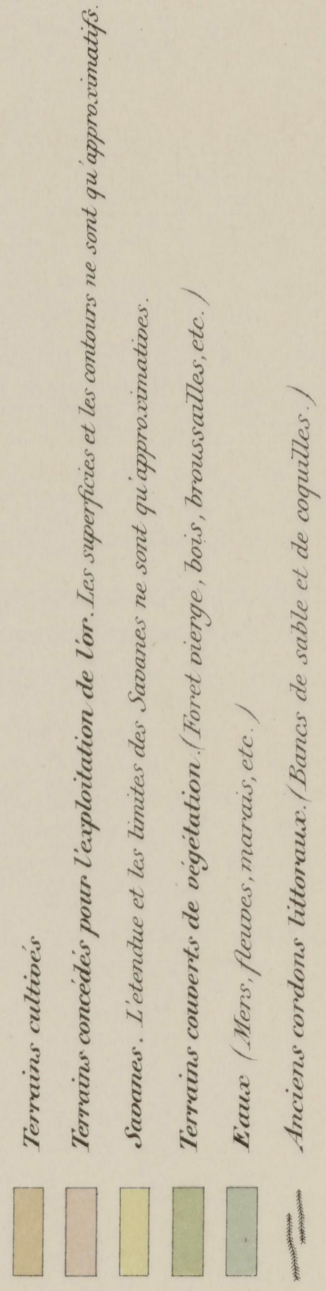 Terrains cultivés
Terrains concédés pour l'exploitation de l'or. Les superficies et les contours ne sont qu'approximatifs.
Savanes. L'etendue et les limites des Savanes ne sont qu'approximatives.
Terrains couverts de végétation. (Foret vierge, bois, broussailles, etc.)
Eaux (Mers, fleuves, marais, etc.)
Anciens cordons littoraux. (Bancs de sable et de coquilles.)